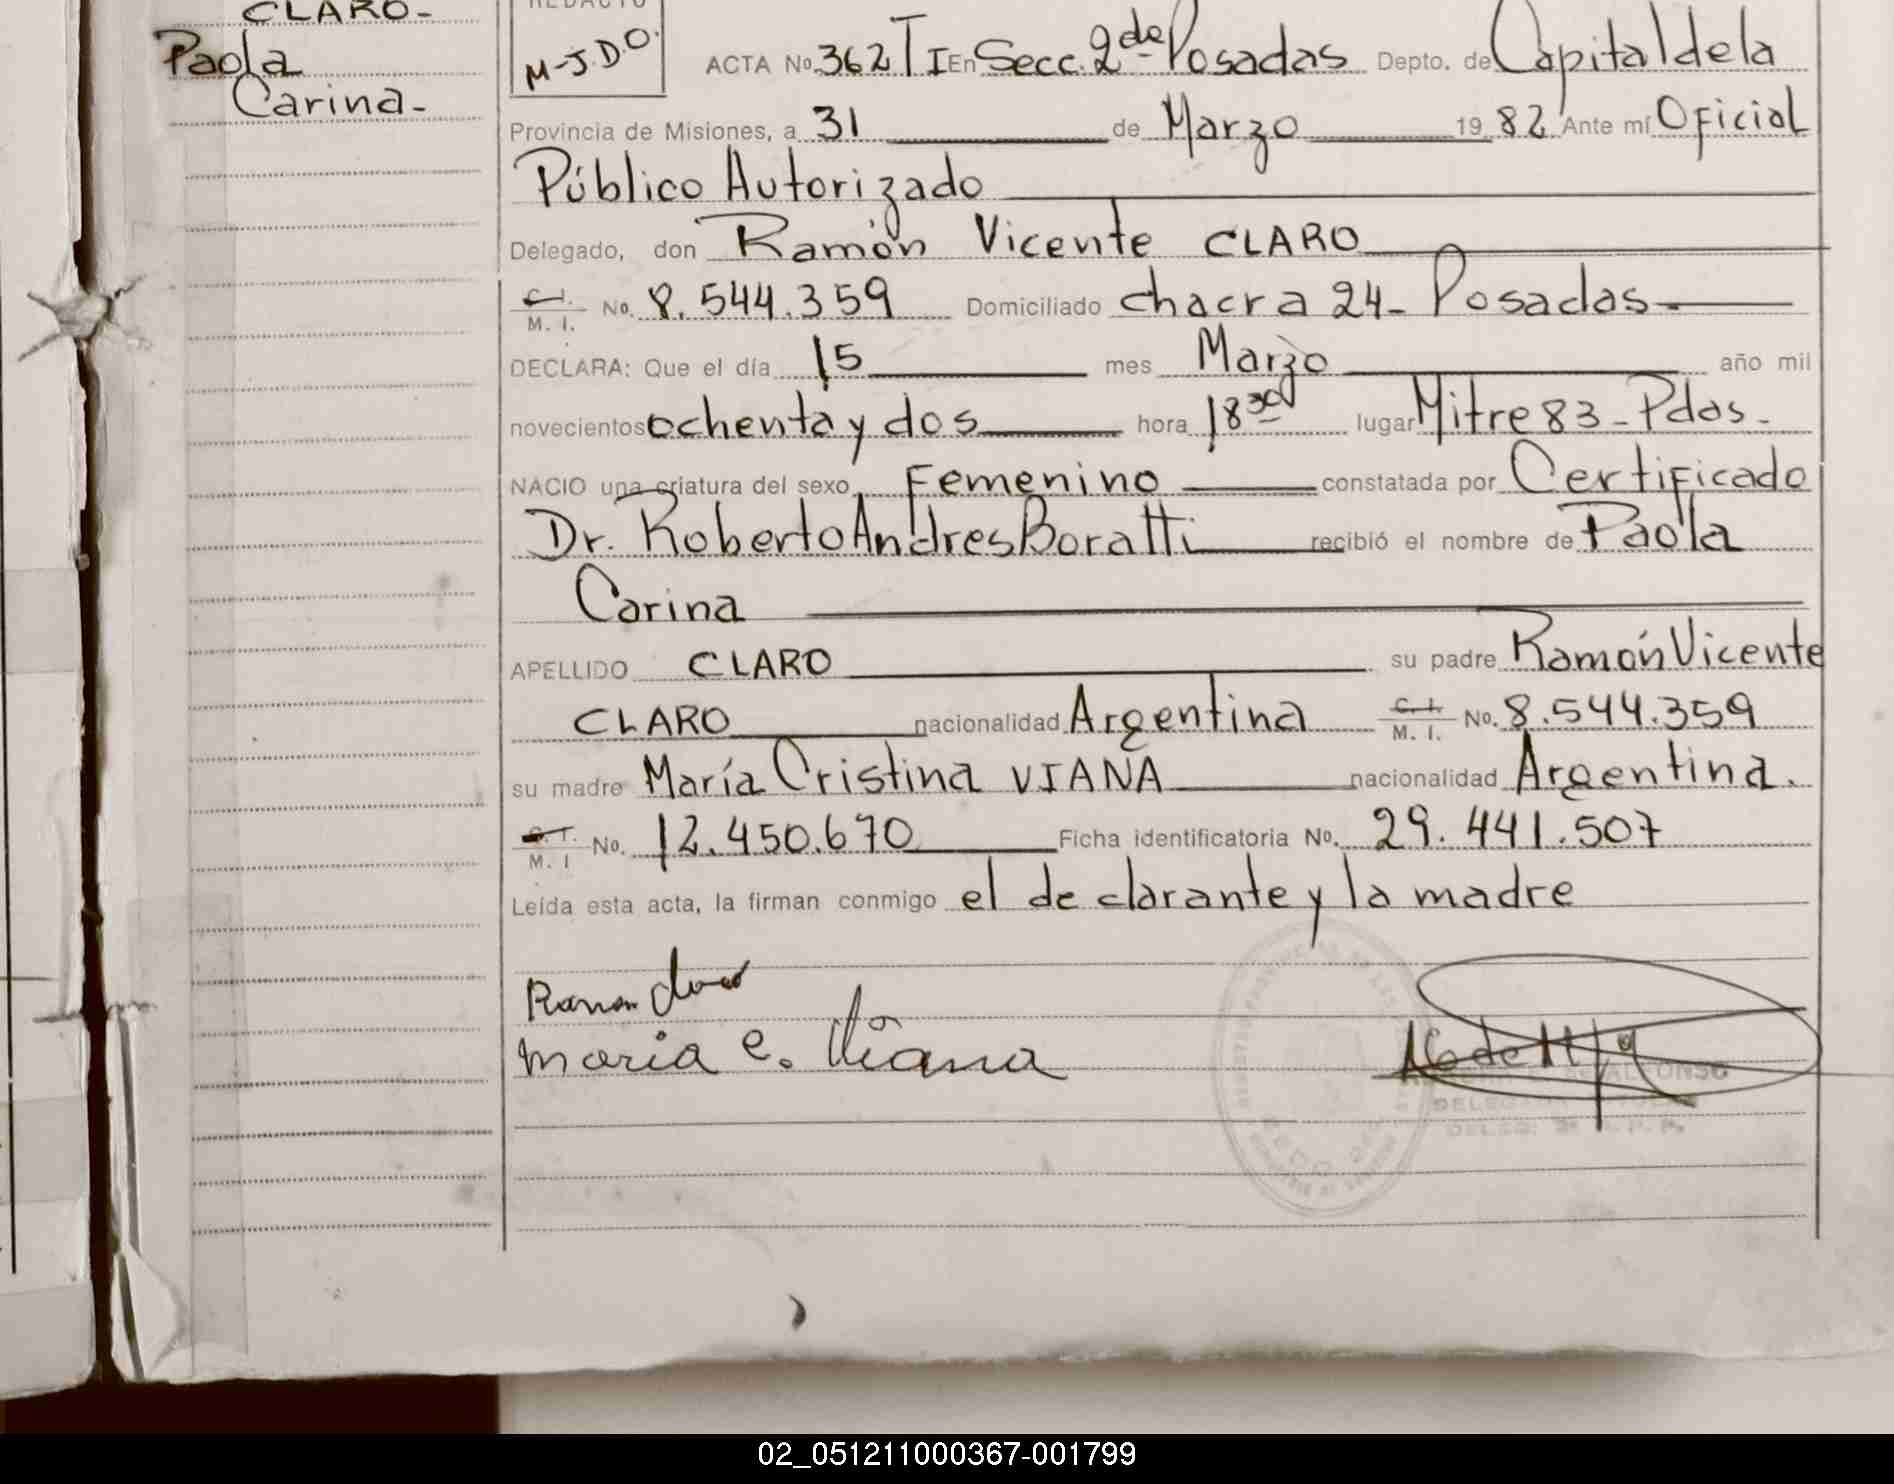 CLARO-
Paola
Carina-
REDACTO
M-J.D.O.
ACTA No. 362 T I En Secc. 2da Posadas Depto. de Capital de la
Provincia de Misiones, a 31 de Marzo 1982 Ante mí Oficial
Público Autorizado
Delegado, don Ramón Vicente CLARO
C.I. M. I. No. 8.544.359 Domiciliado chacra 24- Posadas-
DECLARA: Que el día 15 mes Marzo año mil
novecientos ochenta y dos hora 18 30 lugar Mitre 83-Pdas.
NACIO una criatura del sexo Femenino constatada por Certificado
Dr. Roberto Andres Boratti recibió el nombre de Paola
Carina
APELLIDO CLARO su padre Ramón Vicente
CLARO nacionalidad Argentina C.I. M. I. No. 8.544.359
su madre María Cristina VIANA nacionalidad Argentina.
C.I. M. I No. 12.450.670 Ficha identificatoria No. 29.441.507
Leída esta acta, la firman conmigo el declarante y la madre
Ramon Claro
maria c. Viana
02_051211000367-001799